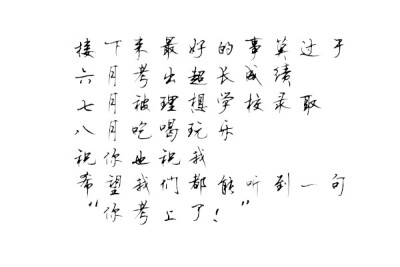 接下来最好的事莫过于
六月考出超长成绩
七月被理想学校录取
八月吃喝玩乐
祝你也祝我
希望我们都能听到一句
“你考上了！”